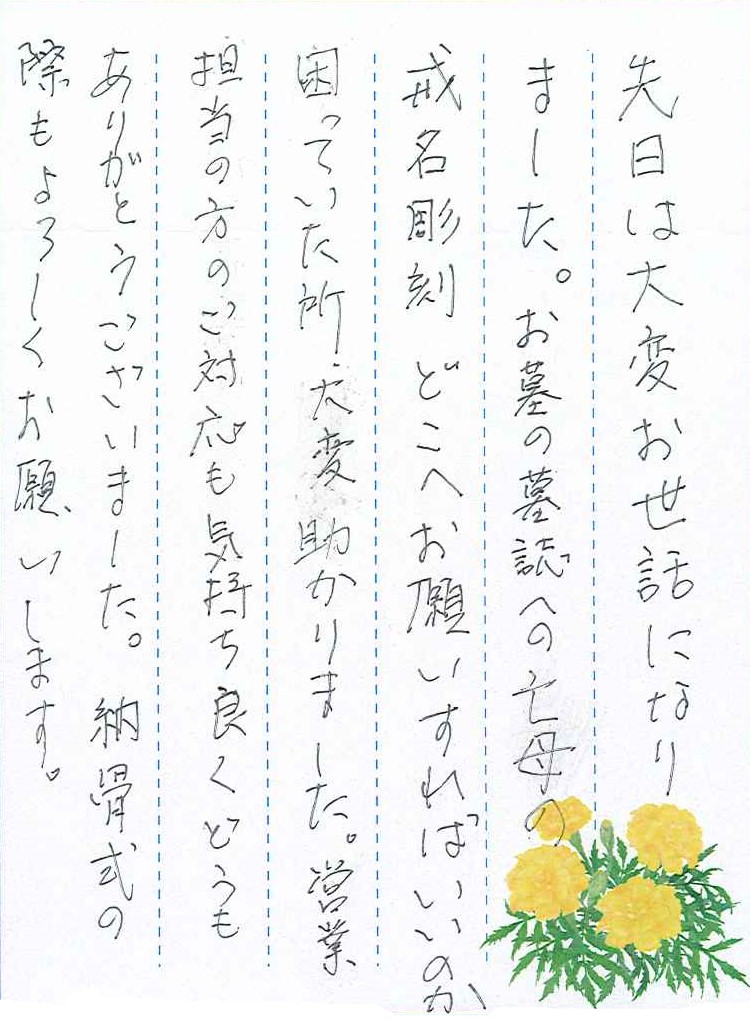 先日は大変お世話になり
ました。お墓の墓誌への亡母の
戒名彫刻 どこへお願いすればいいのか
困っていた所、大変助かりました。営業
担当の方のご対応も気持ち良くどうも
ありがとうございました。納骨式の
際もよろしくお願いします。